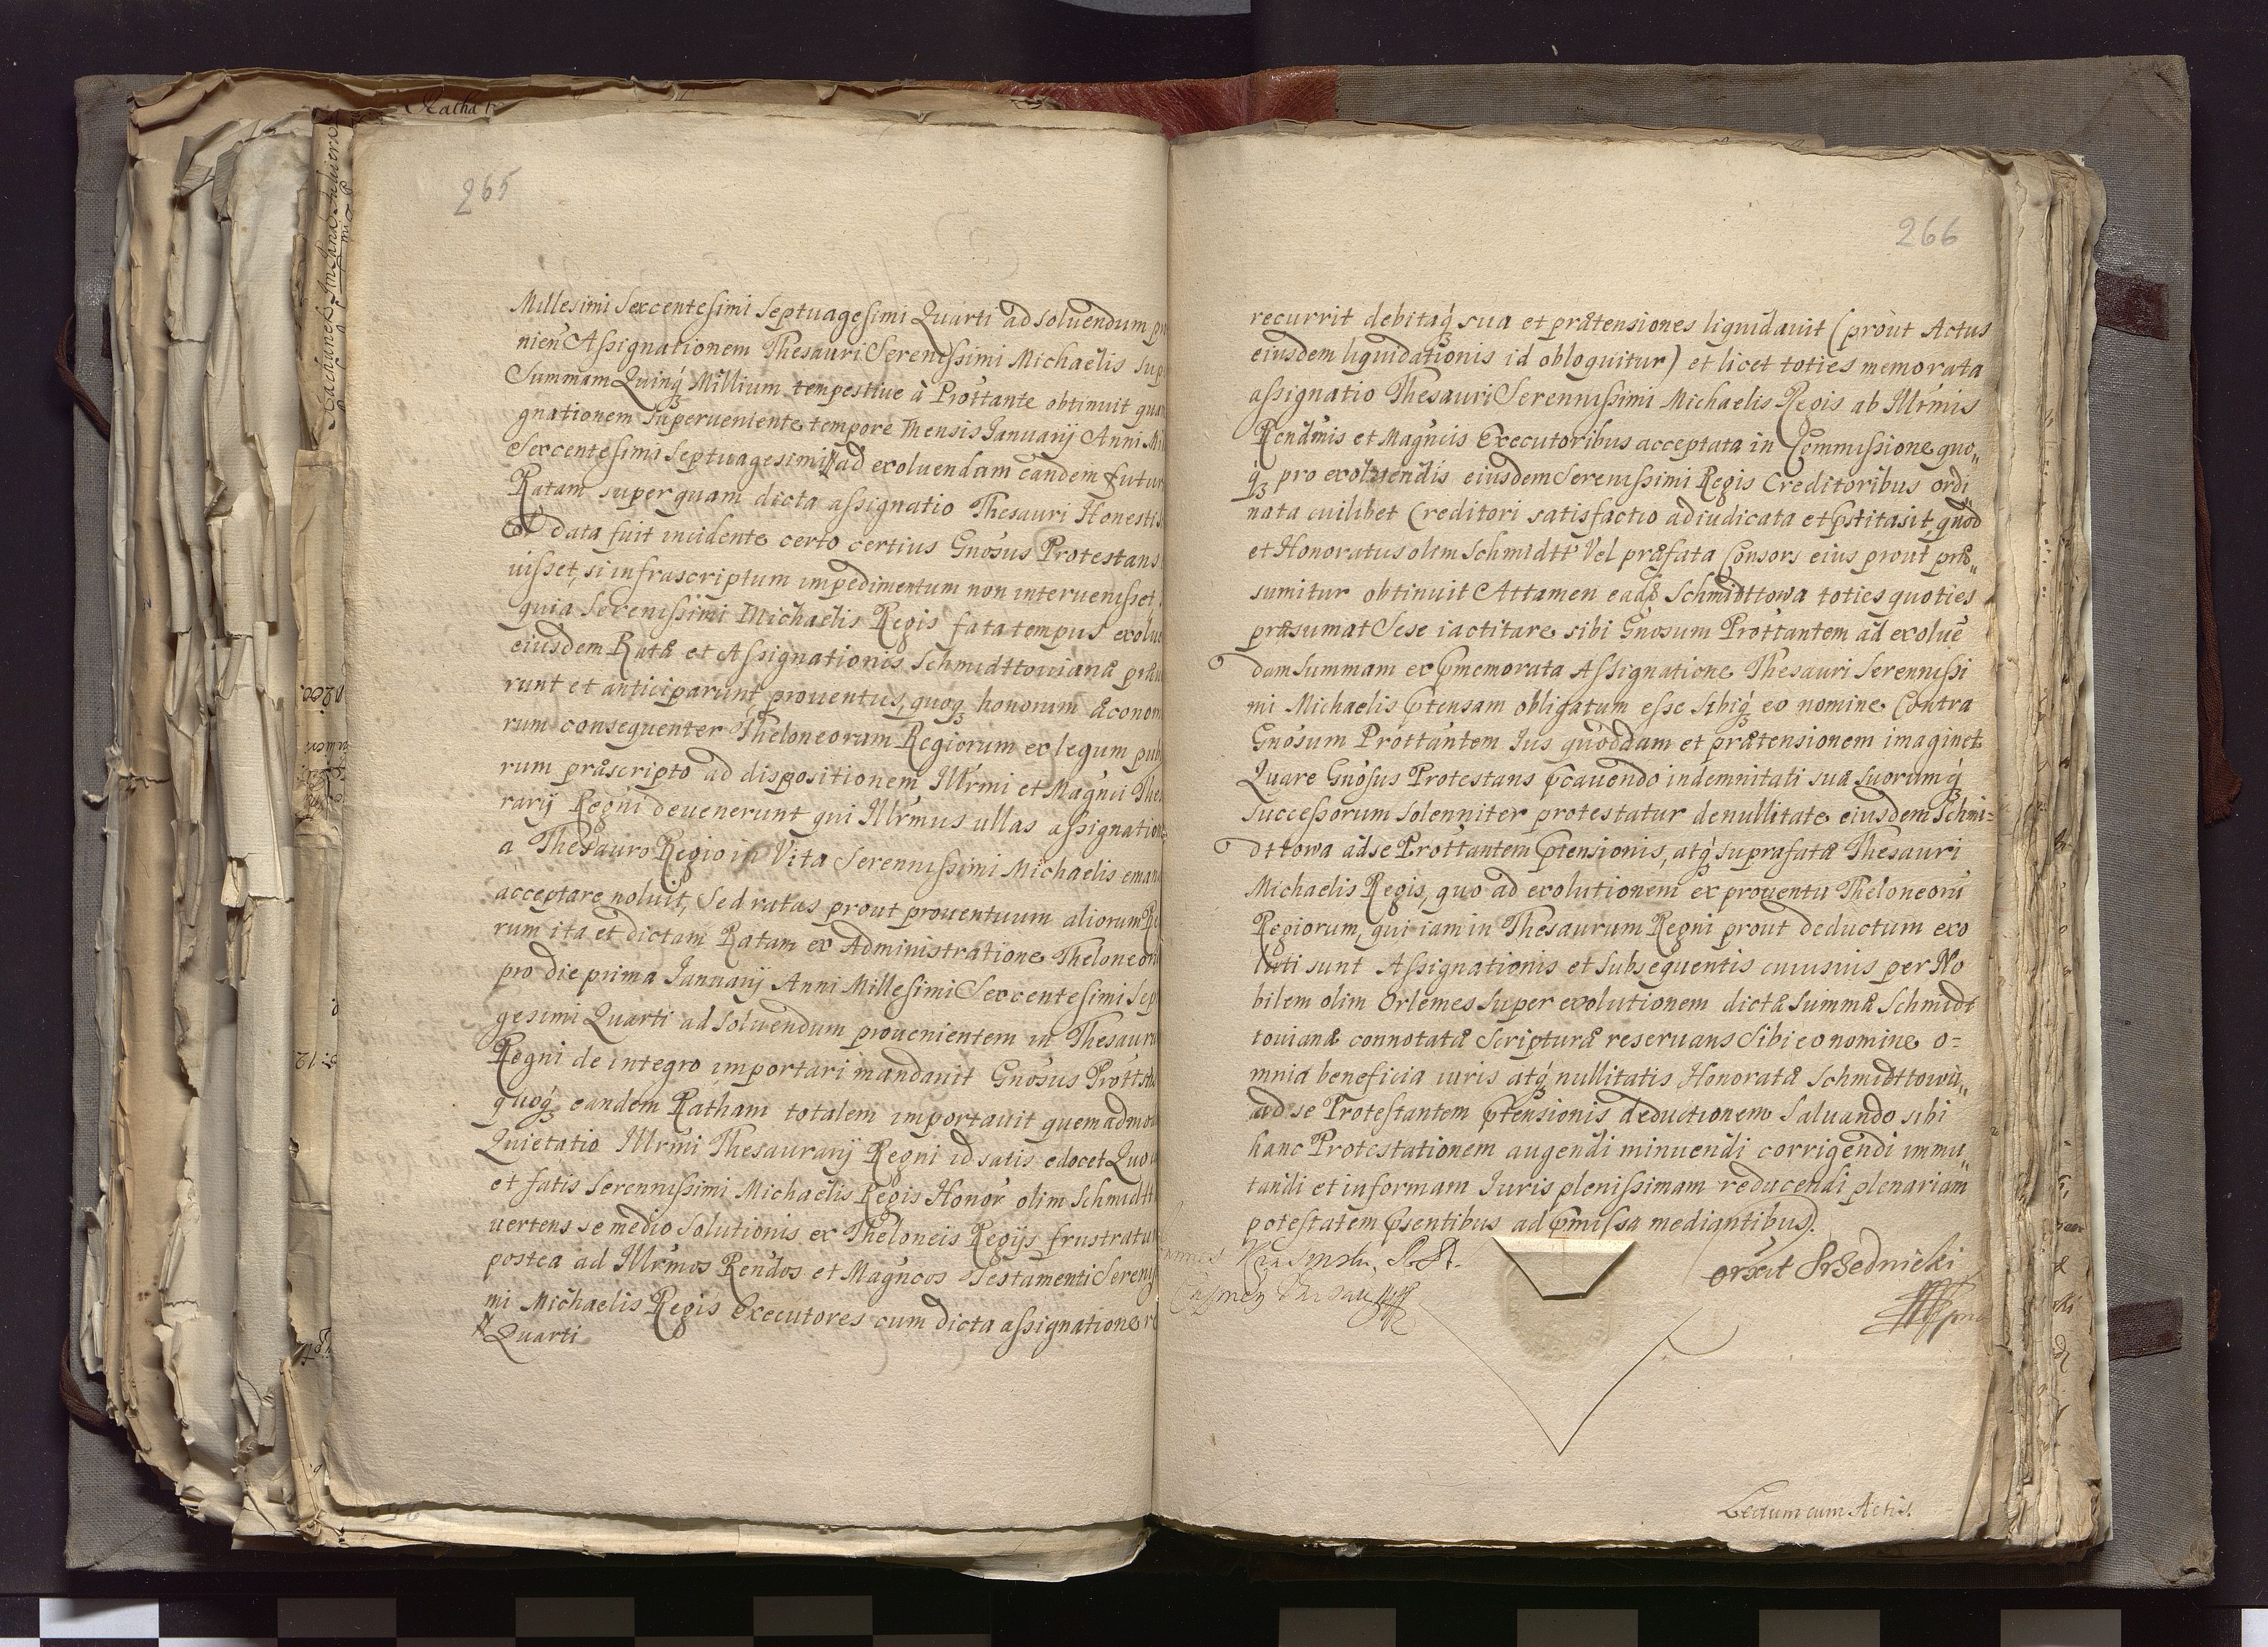 265
Millesimi Sexcentesimi Septuagesimi Quarti ad soluendum
nien Assignationem Thesauri Serenissimi Michaelis sup
Summam Quinq Millium tempestiue à Prottante obtinuit quam
gnationem superueniente tempore Mensis Januarij Anni Mi
Sexcentesimi Septuagesimi ad exoluendam eandem futur
Ratam super quam dicta assignatio Thesauri Honesti
data fuit incidente certo certius Gnosus Protestans
uisset, si infrascriptum impedimentum non interuenisset
quia Serenissimi Michaelis Regis fata tempus exolu
eiusdem Ratæ et Assignationis Schmidttouianæ præu
runt et anticiparunt, prouentus, quoq honorum æconom
rum consequenter Theloneorum Regiorum ex legum pub
rum præscripto ad dispositionem Illrmi et Magnci The
rarij Regni deuenerunt qui Illrmus ullas assignation
a Thesauro Regio in Vita Serennissimi Michaelis eman
acceptare noluit, Sed ratas prout prouentuum aliorum Re
rum ita et dictam Ratam ex Administratione Theloneor
pro die prima Januarij Anni Millesimi Sexcentesimi Sep
gesimi Quarti ad soluendum prouenientem in Thesauru
Regni de integro importari mandauit Gnosus Protts
quoq eandem Ratham totalem importauit quemadmo
Quietatio Illrmi Thesaurarij Regni id satis edocet Quo
et fatis Serennissimi Michaelis Regis Honor olim Schmidtt
uertens se medio solutionis ex Theloneis Regijs frustratu
postea ad Illrmos Rendos et Magncos Testamenti Sereniss
mi Michaelis Regis Executores cum dicta assignatione re
Quarti
266
recurrit debitaq sua et prætensiones liquidauit (prout Actus
eiusdem liquidationis id obloquitur) et licet toties memorata
assignatio Thesauri Serennissimi Michaelis Regis ab Illrmis
Rendmis et Magncis Executoribus acceptata in Commissione quo„
q pro exoluendis eiusdem Serenissimi Regis Creditoribus ordi„
nata cuilibet Creditori satisfactio adiudicata et pstita sit, quod
et Honoratus olim Schmidtt Vel præfata Consors eius prout præ„
sumitur obtinuit Attamen eade Schmidttowa toties quoties
præsumat Sese iactitare sibi Gnosum Prottantem ad exolue
dam Summam ex pmemorata Assignatione Thesauri Serennissi
mi Michaelis ptensam obligatum esse Sibiq eo nomine Contra
Gnosum Prottantem Jus quoddam et prætensionem imaginet
Quare Gnosus Protestans pcauendo indemnitati suæ suorumq
successorum solenniter protestatur de nullitate eiusdem Schmi=
dttowa ad se Prottantem ptensionis, atq suprafatæ Thesauri
Michaelis Regis, quo ad exolutionem ex prouentu Theloneoru
Regiorum, qui iam in Thesaurum Regni prout deductum exo
luti sunt Assignationis et subsequentis cuiusuis per No
bilem olim Orlemes super exolutionem dictæ Summæ Schmidt
touianæ connotatæ Scripturæ reseruans Sibi eo nomine o=
mnia beneficia iuris atq nullitatis Honoratæ Schmidttowæ„
ad se Protestantem ptensionis deductionem Saluando sibi
hanc Protestationem augendi minuendi corrigendi immu„
tandi et in formam Juris plenissimam reducendi plenariam
potestatem psentibus ad pmissa mediantibus.
Srzednicki
Lectum cum Actis.